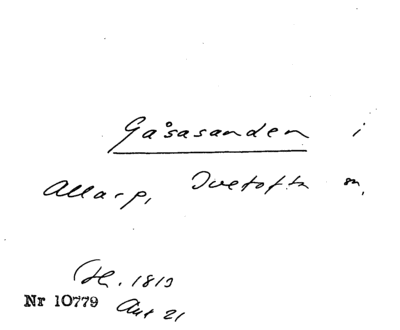 Gåsasanden i
Allarp, Ivetofta sn,
H. 1813
Nr 10779 Akt 21